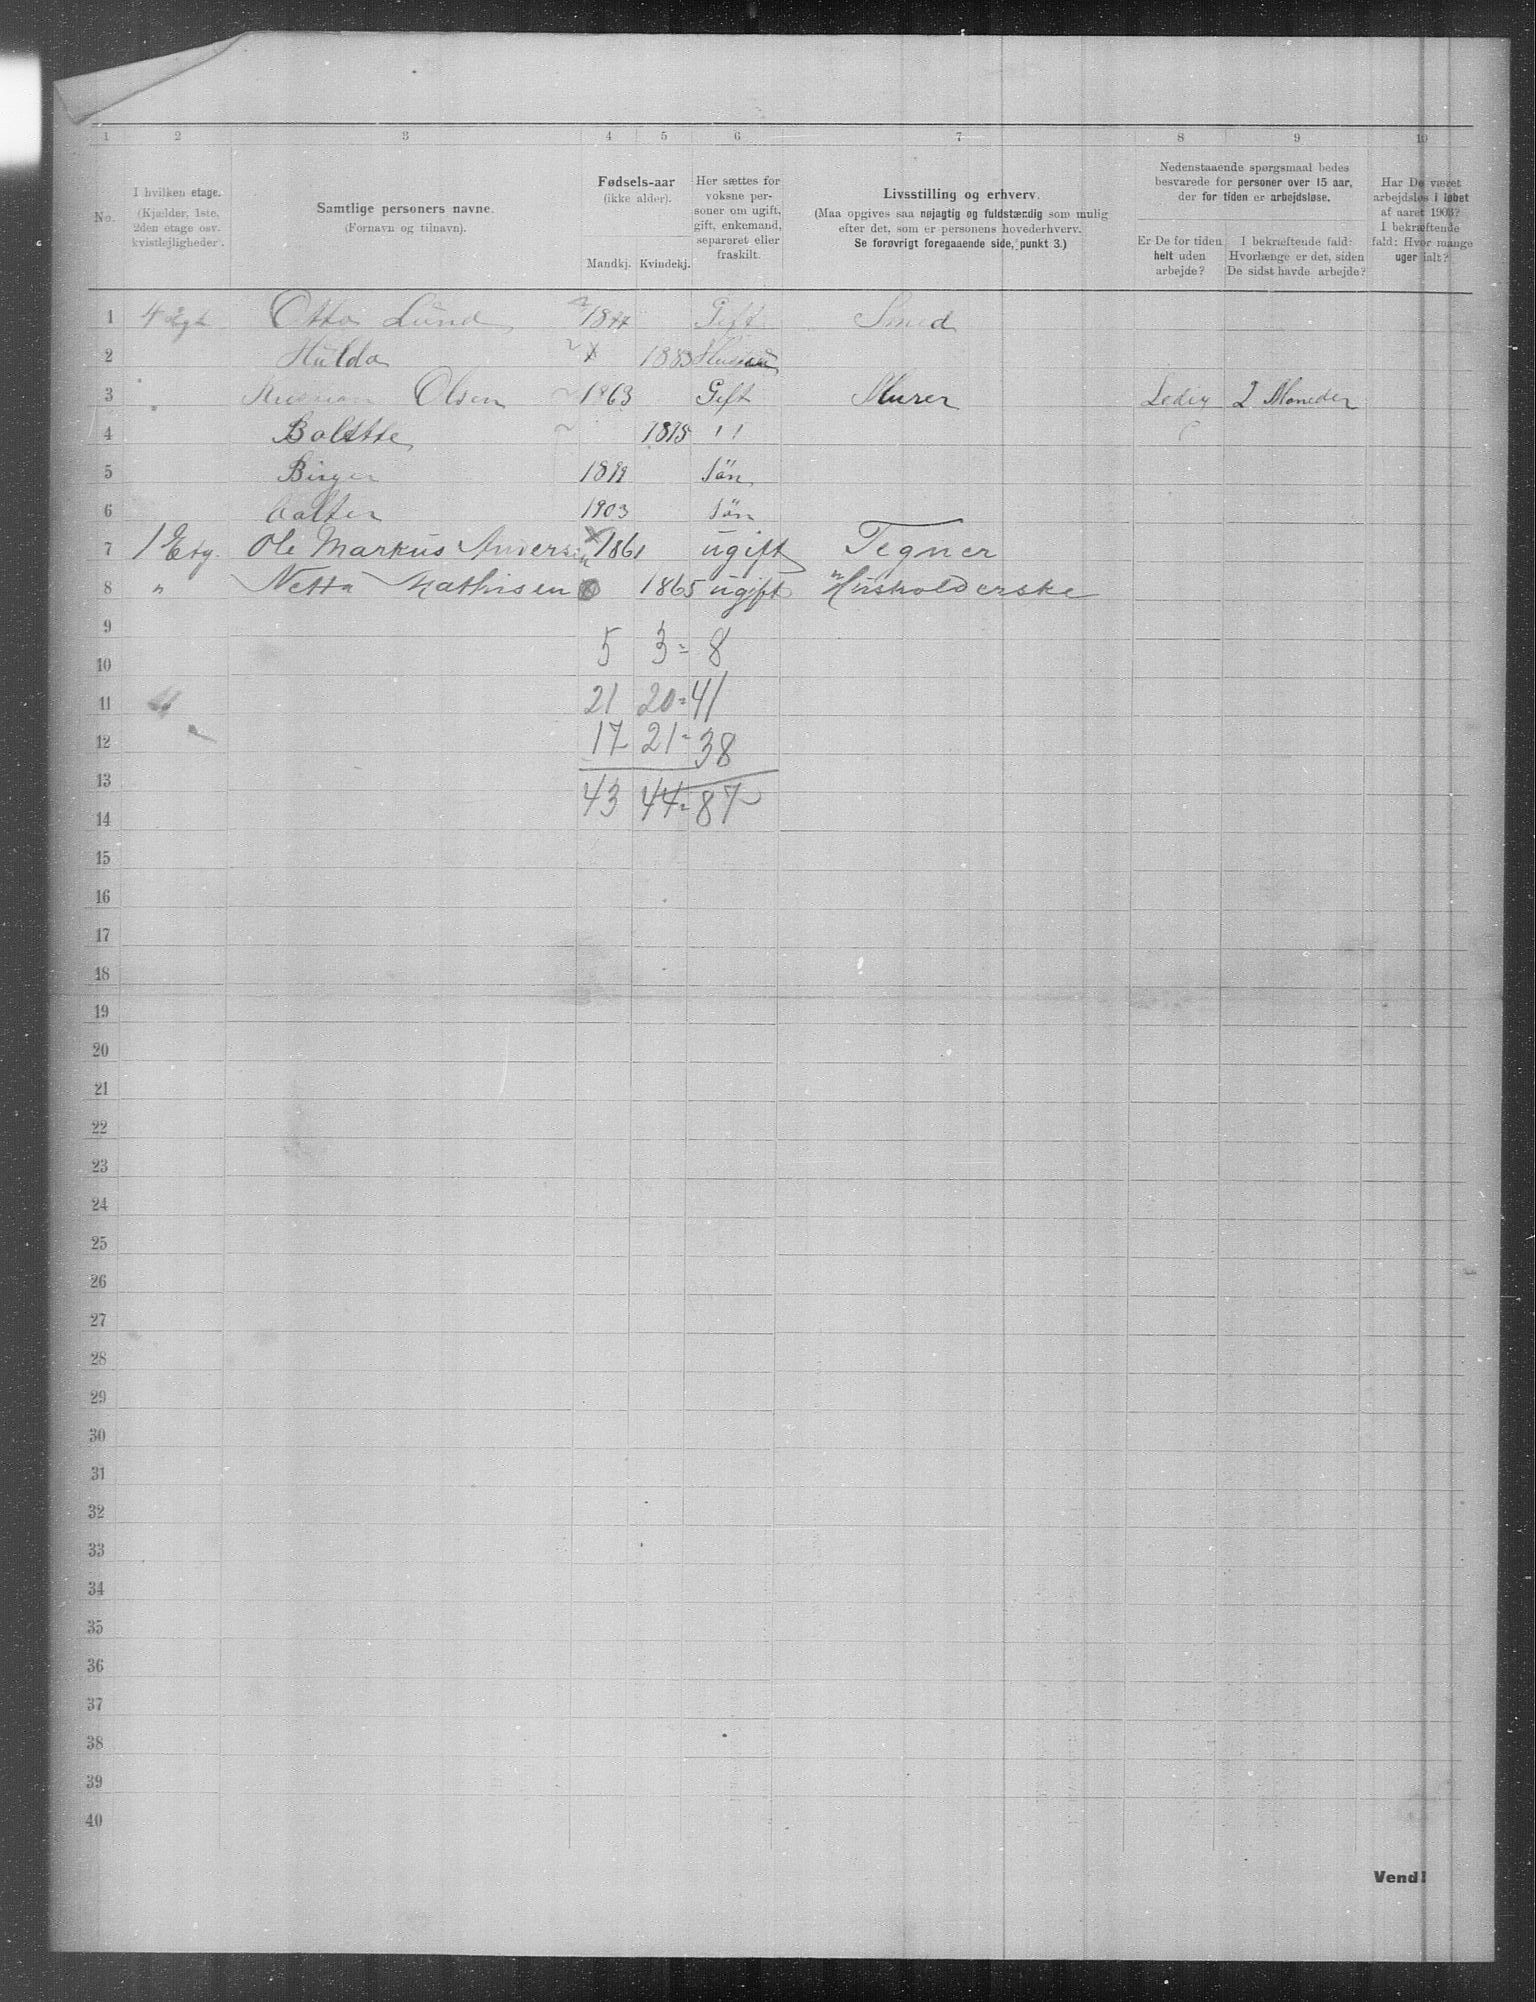 1 2 3 4 5 6 7 8 9 10
No.
I hvilken etage.
(Kjælder, 1ste,
2den etage osv.
kvistlejligheder).
Samtlige personers navne.
(Fornavn og tilnavn).
Fødsels-aar
(ikke alder).
Mandkj. Kvindekj.
Her sættes for
voksne per-
soner om ugift,
gift, enkemand,
separeret eller
fraskilt.
Livsstilling og erhverv.
(Maa opgives saa nøjagtig og fuldstændig som mulig
efter det, som er personens hovederhverv.
Se forøvrigt foregaaende side, punkt 3.)
Nedenstaaende spørgsmaal bedes
besvarede for personer over 15 aar,
der for tiden er arbejdsløse.
Er De for tiden
helt uden
arbejde?
I bekræftende fald:
Hvorlænge er det, siden
De sidst havde arbejde?
Har De været
arbejdsløs i løbet
af aaret 1903?
I bekræftende
fald: Hvor mange
uger ialt?
1 4 Otto Lund Gift Smed
2 Hulda 1883
3 Olsen 1863 Gift Murer Ledig 2 Moneder
4 Bolette 1875 "
5 Birger 1899 Sön
6 1903 Sön
7 1 Etg. Ole Markus Andersen 1861 ugift Tegner
8 " Netta Mathisen 1865 ugift Husholderske
9 5 3 = 8
10
11 21 20 = 41
12 17 21 = 38
13 43 44 = 87
14
15
16
17
18
19
20
21
22
23
24
25
26
27
28
29
30
31
32
33
34
35
36
37
38
39
40
Vend!